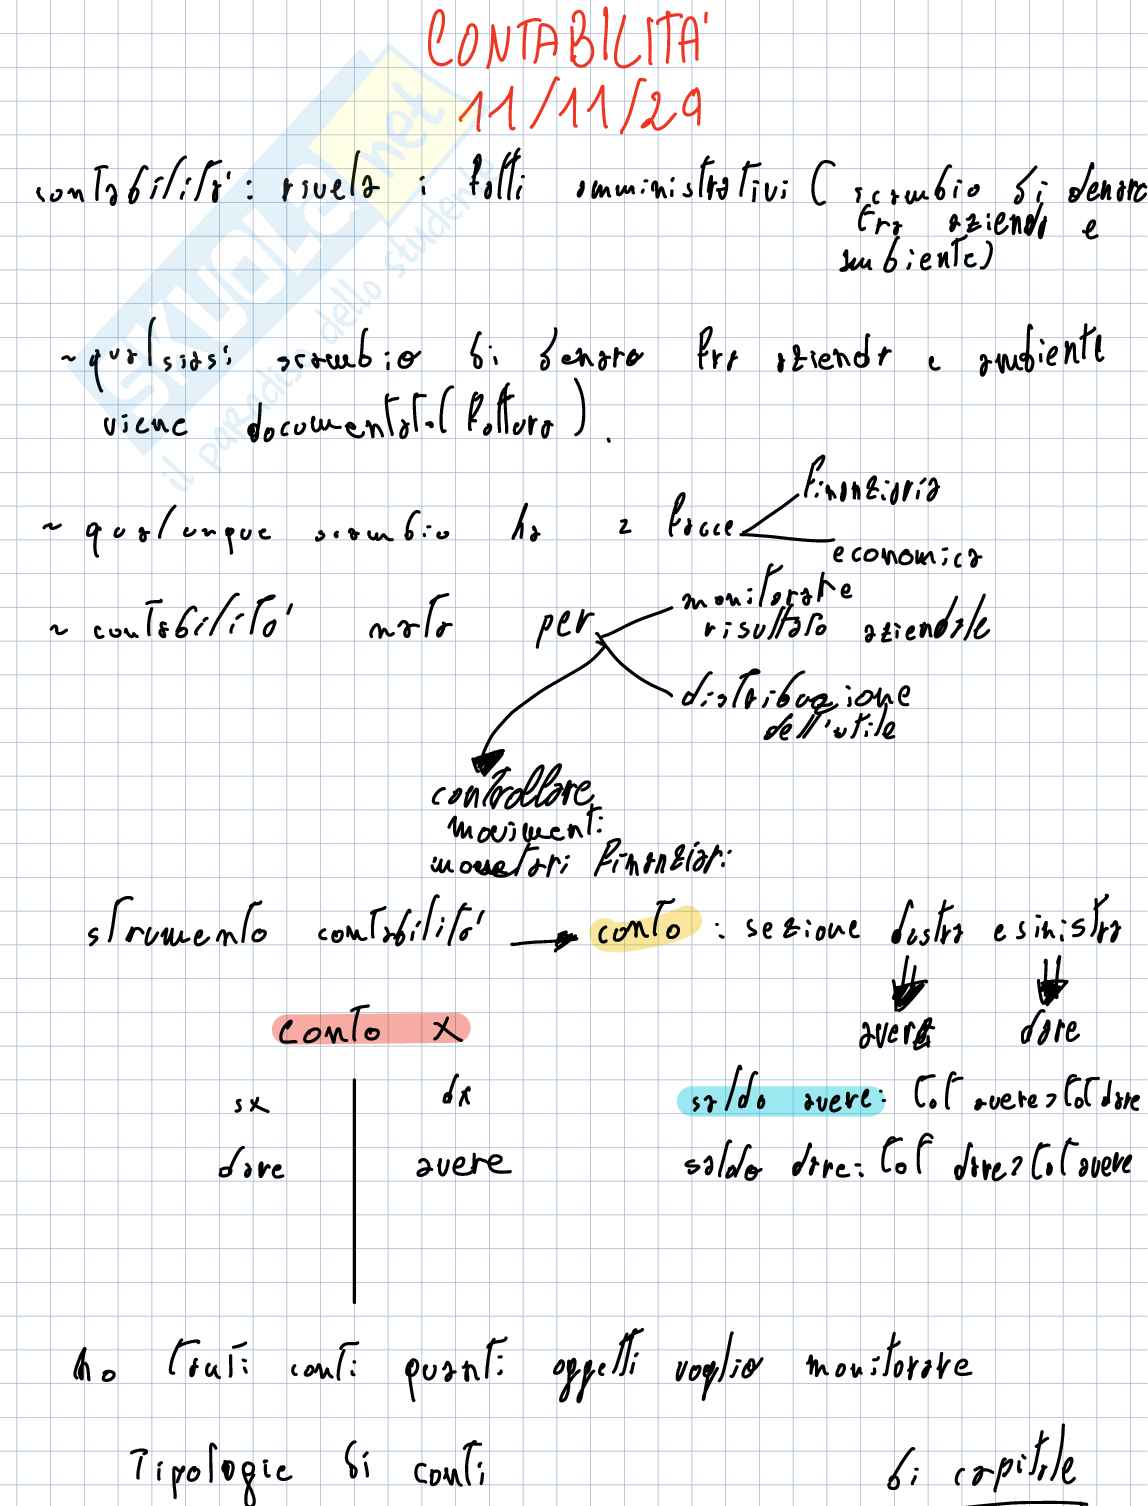 CONTABILITA'
11/11/29
contabilità: rivela i fatti amministrativi (scambio di denaro
tra azienda e
ambiente)
~ qualsiasi scambio di denaro tra azienda e ambiente
viene documentato (fattura).
~ qualunque scambio ha 2 facce
finanziaria
economica
~ contabilità nata per
monitorare
risultato aziendale
distribuzione
dell'utile
controllare
movimenti
monetari finanziari
strumento contabilità → conto : sezione destra e sinistra
avere dare
conto x
sx dx
dare avere
saldo avere: tot avere > tot dare
saldo dare: tot dare > tot avere
ho tanti conti quanti oggetti voglio monitorare
Tipologie di conti di capitale
SKUOLA.net
il paradiso dello studente